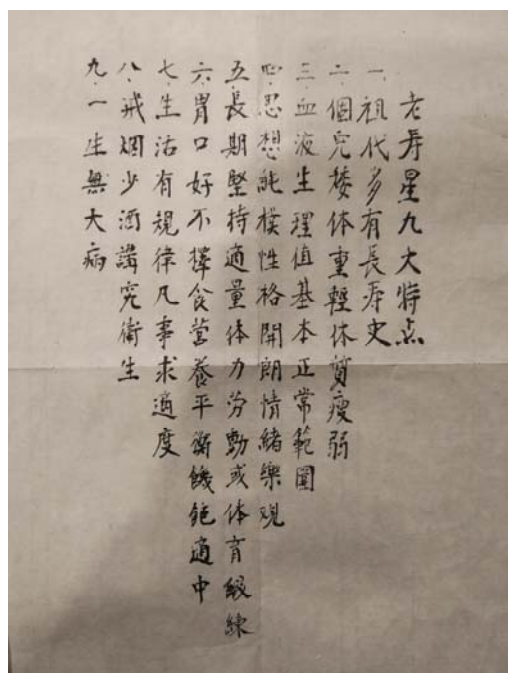 老寿星九大特点
一.祖代多有長寿史
二.個兒矮体重輕体質瘦弱
三.血液生理值基本正常範圍
四.思想純樸性格開朗情緒樂观
五.長期堅持適量体力劳動或体育鍛練
六.胃口好不擇食营養平衡饑飽適中
七.生活有規律凡事求適度
八.戒烟少酒講究衛生
九.一生無大病